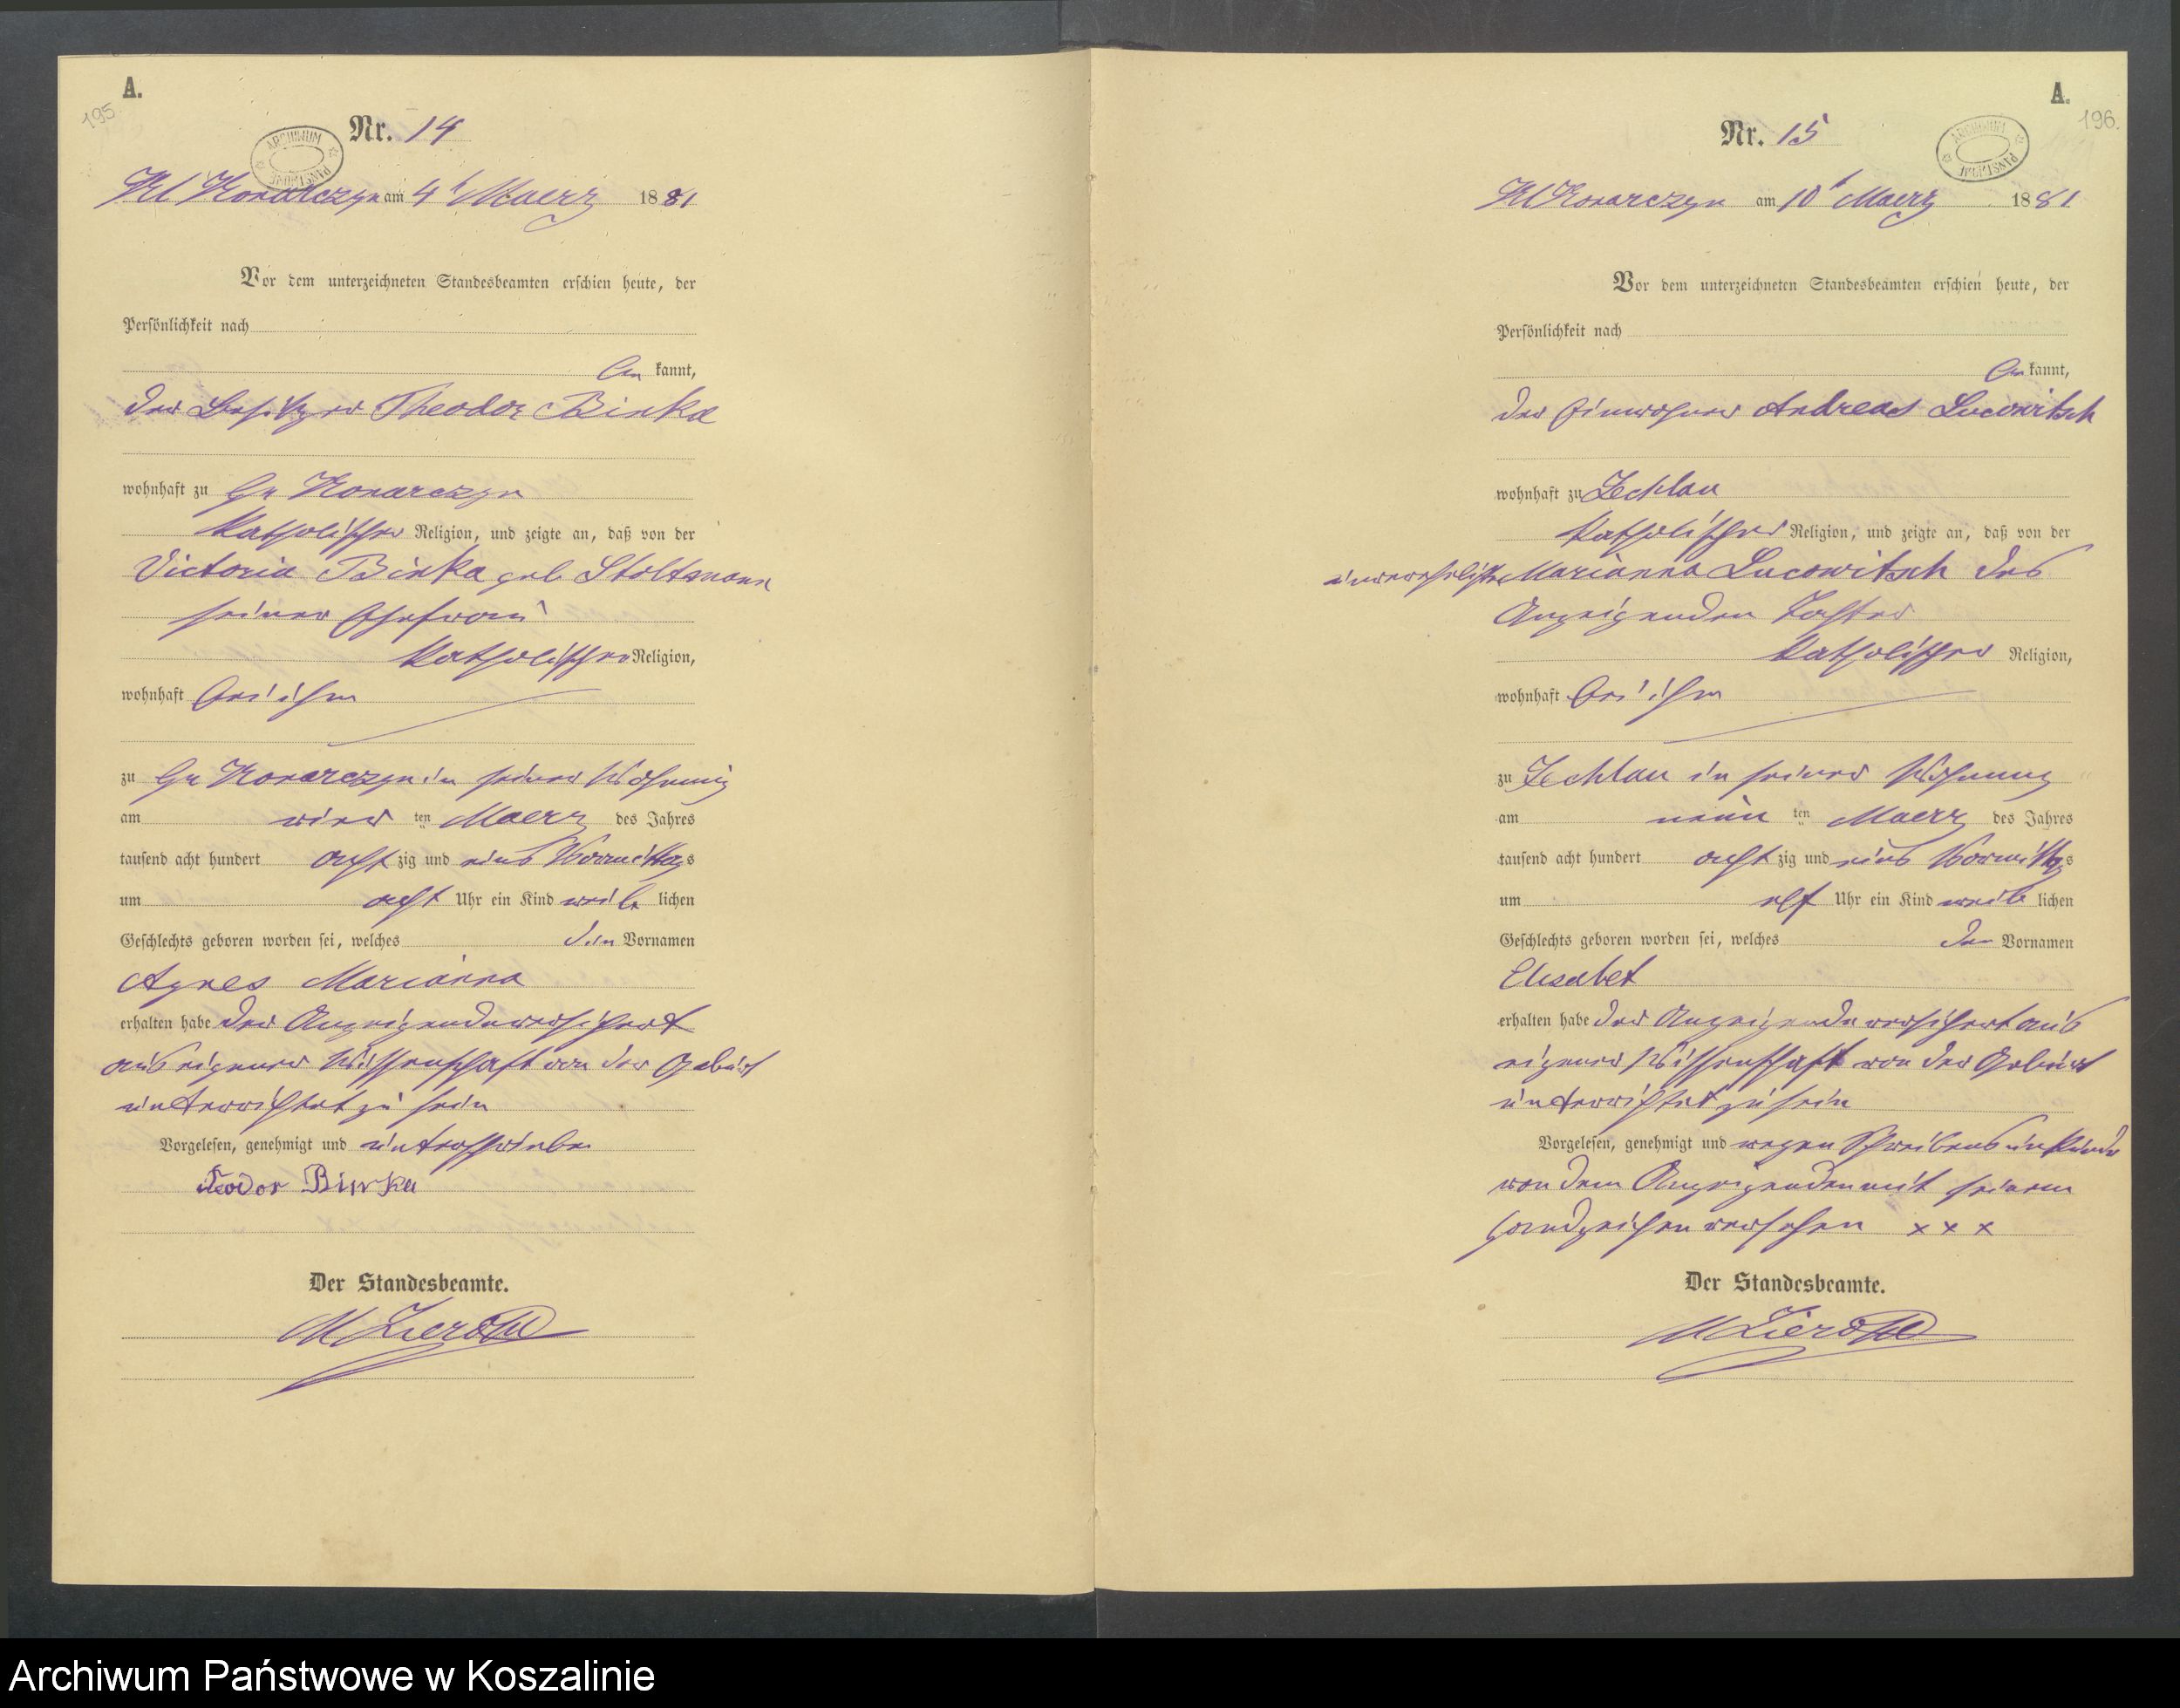 A.
195
Nr. 14
ARCHIWUM PAŃSTWOWE
Kl Konarczyn am 4t Maerz 1881
Vor dem unterzeichneten Standesbeamten erschien heute, der
Persönlichkeit nach
be kannt,
der Besitzer Theodor Binka
wohnhaft zu Gr Konarczyn
katholischer Religion, und zeigte an, daß von der
Victoria Binka geb Stoltmann
seiner Ehefrau
katholischer Religion,
wohnhaft bei ihm
zu Gr Konarczyn in seiner Wohnung
am vier ten Maerz des Jahres
tausend acht hundert acht zig und eins Vormittags
um acht Uhr ein Kind weib lichen
Geschlechts geboren worden sei, welches den Vornamen
Agnes Marianna
erhalten habe der Anzeigende versichert
aus eigener Wissenschaft von der Geburt
unterrichtet zu sein
Vorgelesen, genehmigt und unterschrieben
Teodor Binka
Der Standesbeamte.
A.
196.
Nr. 15
ARCHIWUM PAŃSTWOWE
Kl Konarczyn am 10t Maerz 1881
Vor dem unterzeichneten Standesbeamten erschien heute, der
Persönlichkeit nach
be kannt,
der Einwohner Andreas Lucowitsch
wohnhaft zu Zechlau
katholischer Religion, und zeigte an, daß von der
unverehelichte Marianna Lucowitsch des
Anzeigenden Tochter
katholischer Religion,
wohnhaft bei ihm
zu Zechlau in seiner Wohnung
am neun ten Maerz des Jahres
tausend acht hundert acht zig und eins Vormittags
um elf Uhr ein Kind weib lichen
Geschlechts geboren worden sei, welches den Vornamen
Elisabet
erhalten habe der Anzeigende versichert aus
eigener Wissenschaft von der Geburt
unterrichtet zu sein
Vorgelesen, genehmigt und wegen Schreibens unkunde
von dem Anzeigenden mit seinem
Handzeichen versehen x x x
Der Standesbeamte.
Archiwum Państwowe w Koszalinie